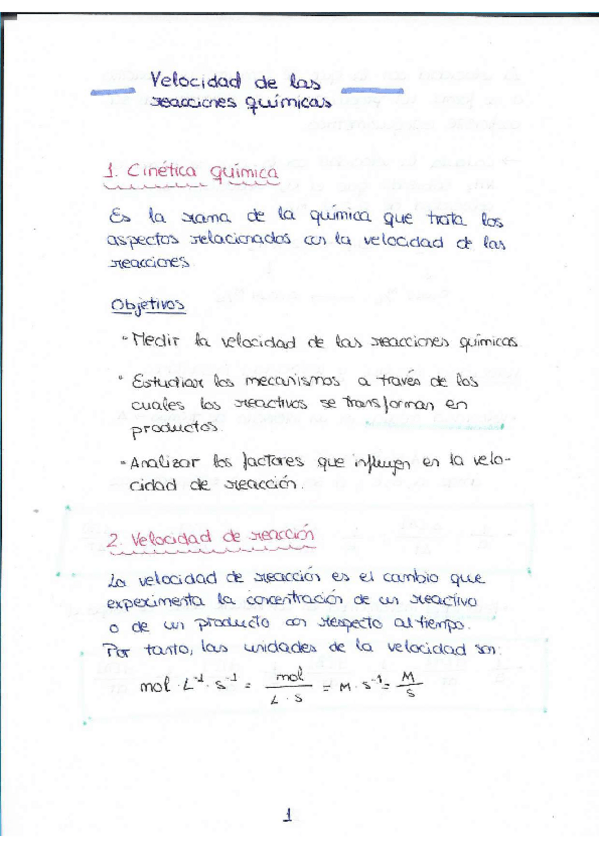 Velocidad de las
reacciones químicas
1. Cinética química
Es la rama de la química que trata los
aspectos relacionados con la velocidad de las
reacciones
Objetivos
· Medir la velocidad de las reacciones químicas
· Estudiar los mecanismos a través de los
cuales los reactivos se transforman en
productos.
· Analizar los factores que influyen en la velo-
cidad de reacción.
2. Velocidad de reacción
La velocidad de reacción es el cambio que
experimenta la concentración de un reactivo
o de un producto con respecto al tiempo.
Por tanto, las unidades de la velocidad son:
mol · L⁻¹ · s⁻¹ = mol / L · s = M · s⁻¹ = M / s
1